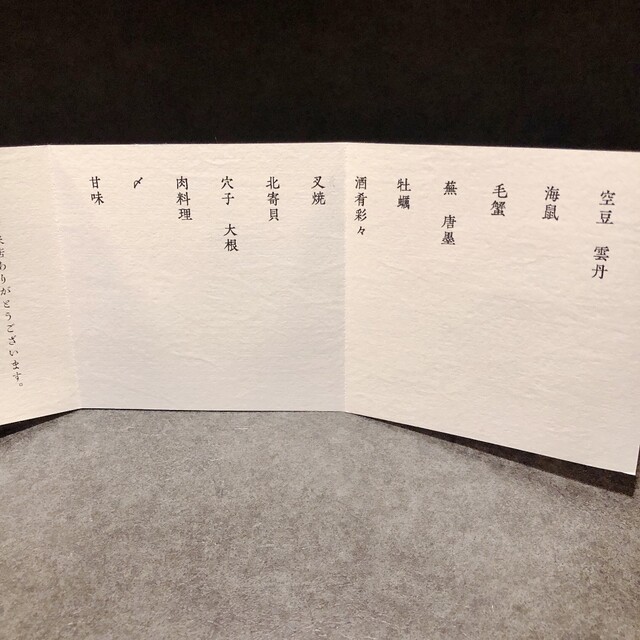 空豆 雲丹
海鼠
毛蟹
蕪 唐墨
牡蠣
酒肴彩々
叉焼
北寄貝
穴子 大根
肉料理
〆
甘味
ありがとうございます。